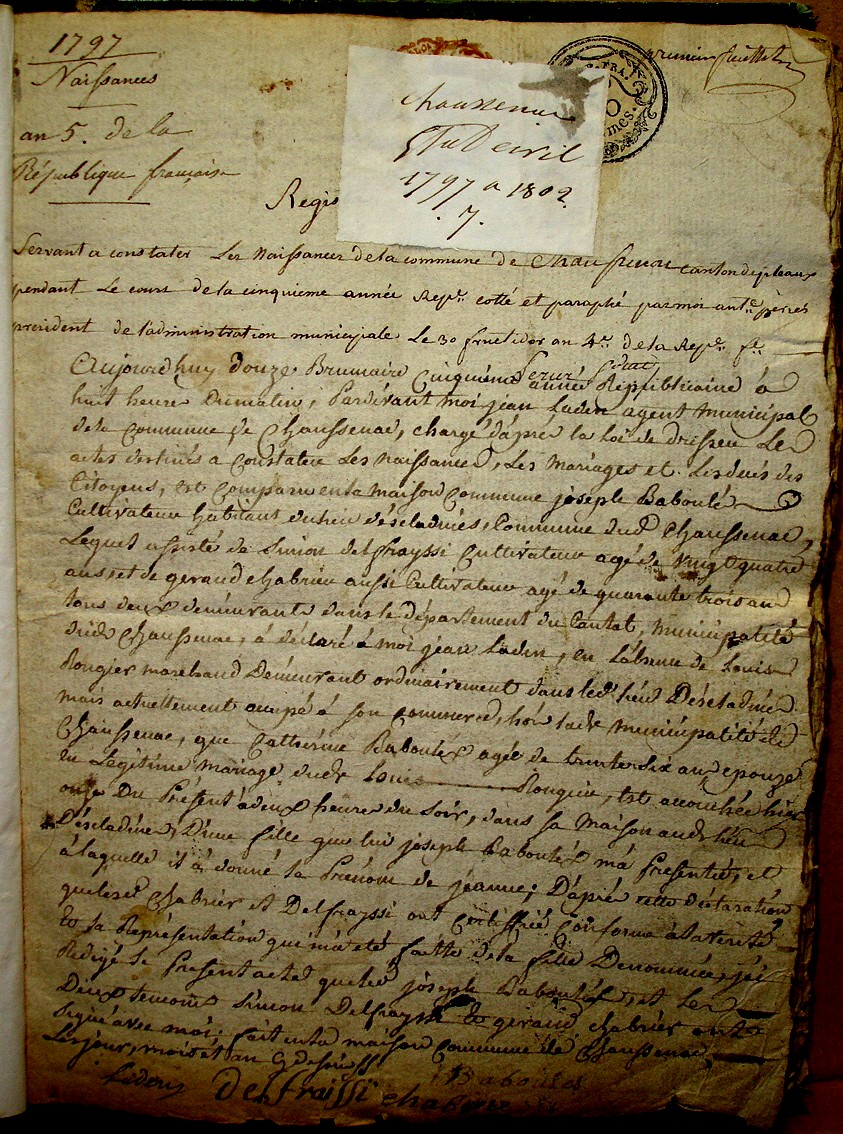 1797
Naissances
an 5. de la
République française
premier feuillet
chaussenac
Etat Civil
1797 a 1802.
. 7.
Regis
Servant a constater Les Naissances de la commune de Chaussenac canton de pleaux
pendant Le cours de la cinquieme année Repe. cotté et paraphé par moi ante. pèries
president de l'administration municipale Le 30 fructidor an 4e. de la Repe. fe.
Aujourd huy douze Brumaire Cinquieme année Republicaine à
huit heure du matin, Pardevant moi jean Laden agent municipal
de la Commune de Chaussenac, chargé d'après la Loi de dresser Les
actes destinés a Constater Les Naissances, Les Mariages et Les decés des
Citoyens, est Comparu en la maison Commune joseph Baboulés
Cultivateur habitant du lieu d'éscladines, Commune dud. Chaussenac,
Lequel assisté de Simon delfrayssi Cultivateur agé de vingt quatre
ans, et de geraud Chabrier aussi Cultivateur agé de quarante trois ans
tous deux demeurants dans le département du Cantal, municipalité
dude Chaussenac, à déclaré à moi jean Laden, en L'absence de Louis
Rougier marchand Demeurant ordinairement dans led. lieu Déscladines
mais actuellement occupé à son commerce, hors lade municipalité de
Chaussenac, que Catherine Baboulés agée de trente six ans epouze
en Légitime mariage dude Louis Rougier, est accouchée hier
onze Du Présent à deux heures du soir, dans sa Maison aud. lieu
Déscladines, D'une fille que lui joseph Baboulés m'a Presentée, et
à laquelle il à donné le Prénom de jeanne; D'après cette déclaration
que lesd. Chabrier et Delfrayssi ont Certiffié Conforme à la vérité
Et la Représentation qui m'a eté faitte de la fille Denommée, j'ai
Rédigé le Présent acte que led. joseph Baboulés, et les
Deux temoins Simon Delfrayssi Et geraud Chabrier ont
signé avec moi. fait en la maison Commune de Chaussenac
Les jour, mois et an
Laden Baboules
delfraissi chabrier